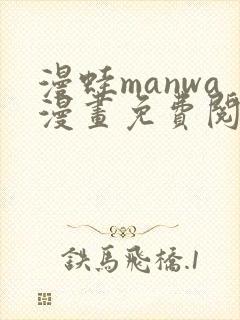 漫蛙manwa
漫畫免費閱
鉄馬飛橋.1